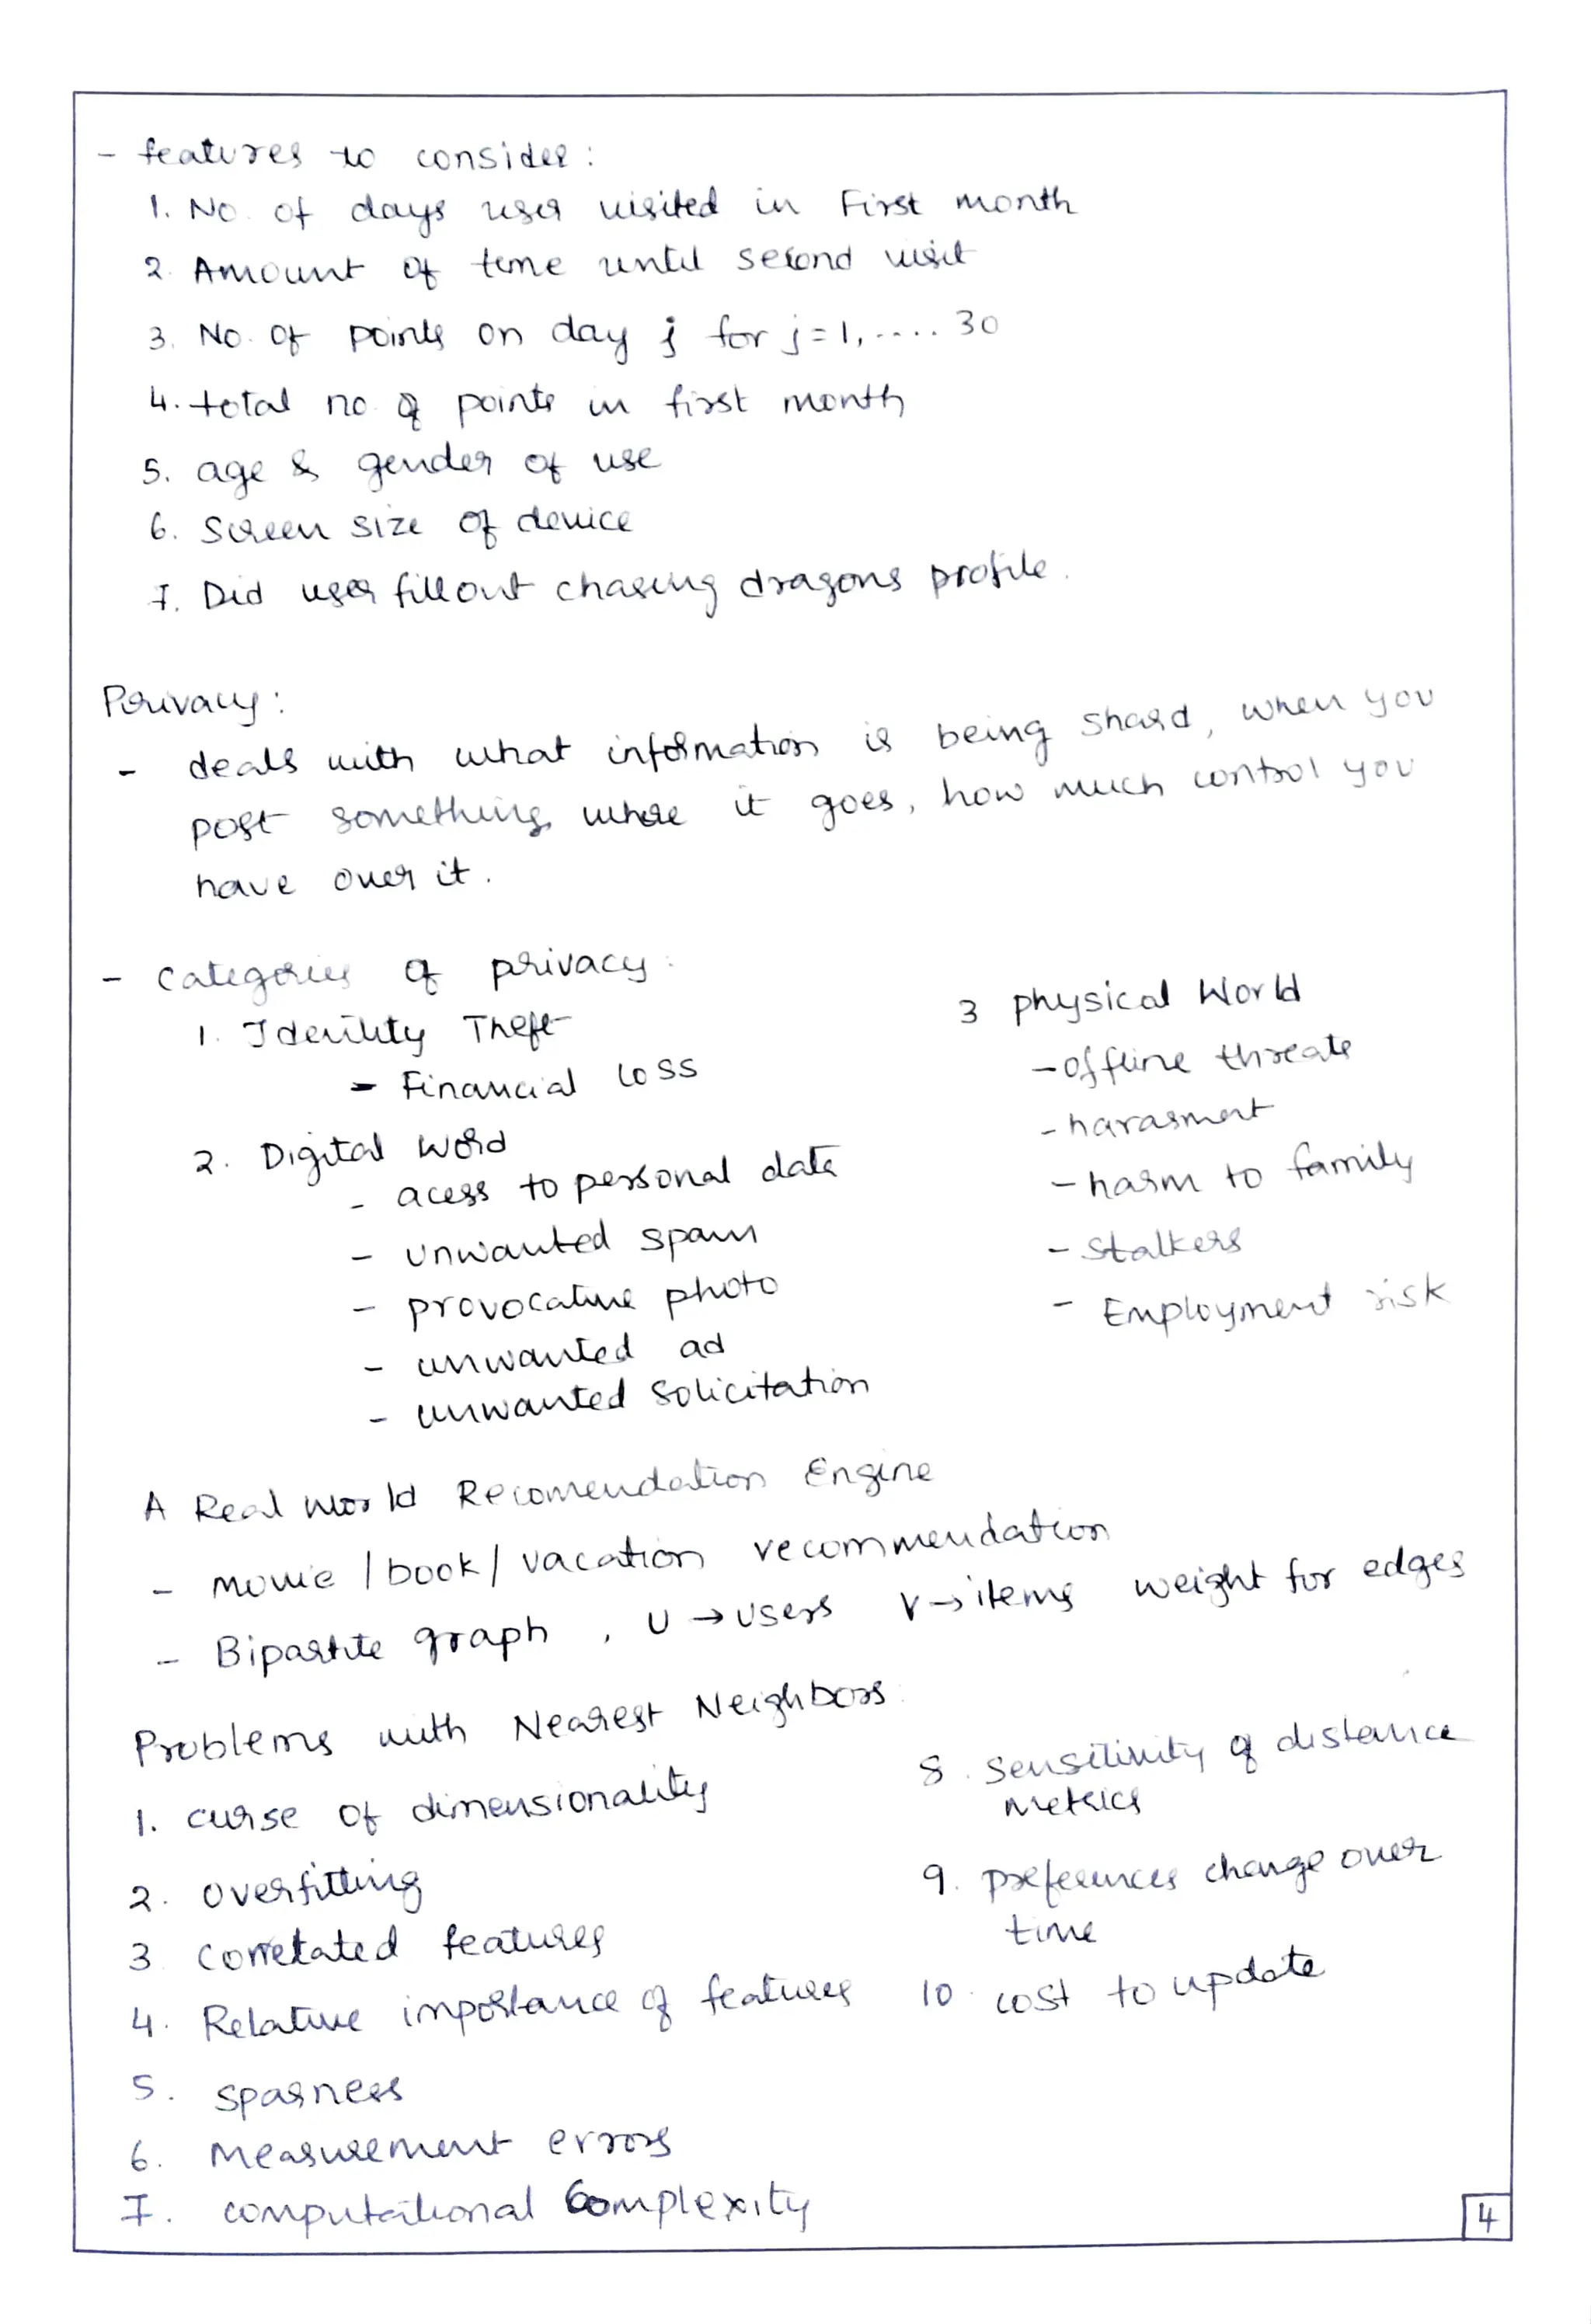 - features to consider :
1. No. of days user visited in First month
2. Amount of time until second visit
3. No. of points on day j for j=1, .... 30
4. total no. of points in first month
5. age & gender of use
6. Screen size of device
7. Did user fill out chasing dragons profile.
Privacy :
- deals with what information is being shard, when you
post something, where it goes, how much control you
have over it.
- Categories of privacy :
1. Identity Theft
- Financial loss
2. Digital World
- acess to personal data
- unwanted spam
- provocative photo
- unwanted ad
- unwanted solicitation
3 physical World
- offline threats
- harasment
- harm to family
- Stalkers
- Employment risk
A Real World Recomendation Engine
- movie / book / vacation recommendation
- Bipartite graph , U → users V → items weight for edges
Problems with Nearest Neighbors :
1. curse of dimensionality
2. overfitting
3 Correlated features
4. Relative importance of features
5. sparness
6. Measurement errors
7. computational Complexity
8. Sensitivity of distance
Metrics
9. preferences change over
time
10. cost to update
4